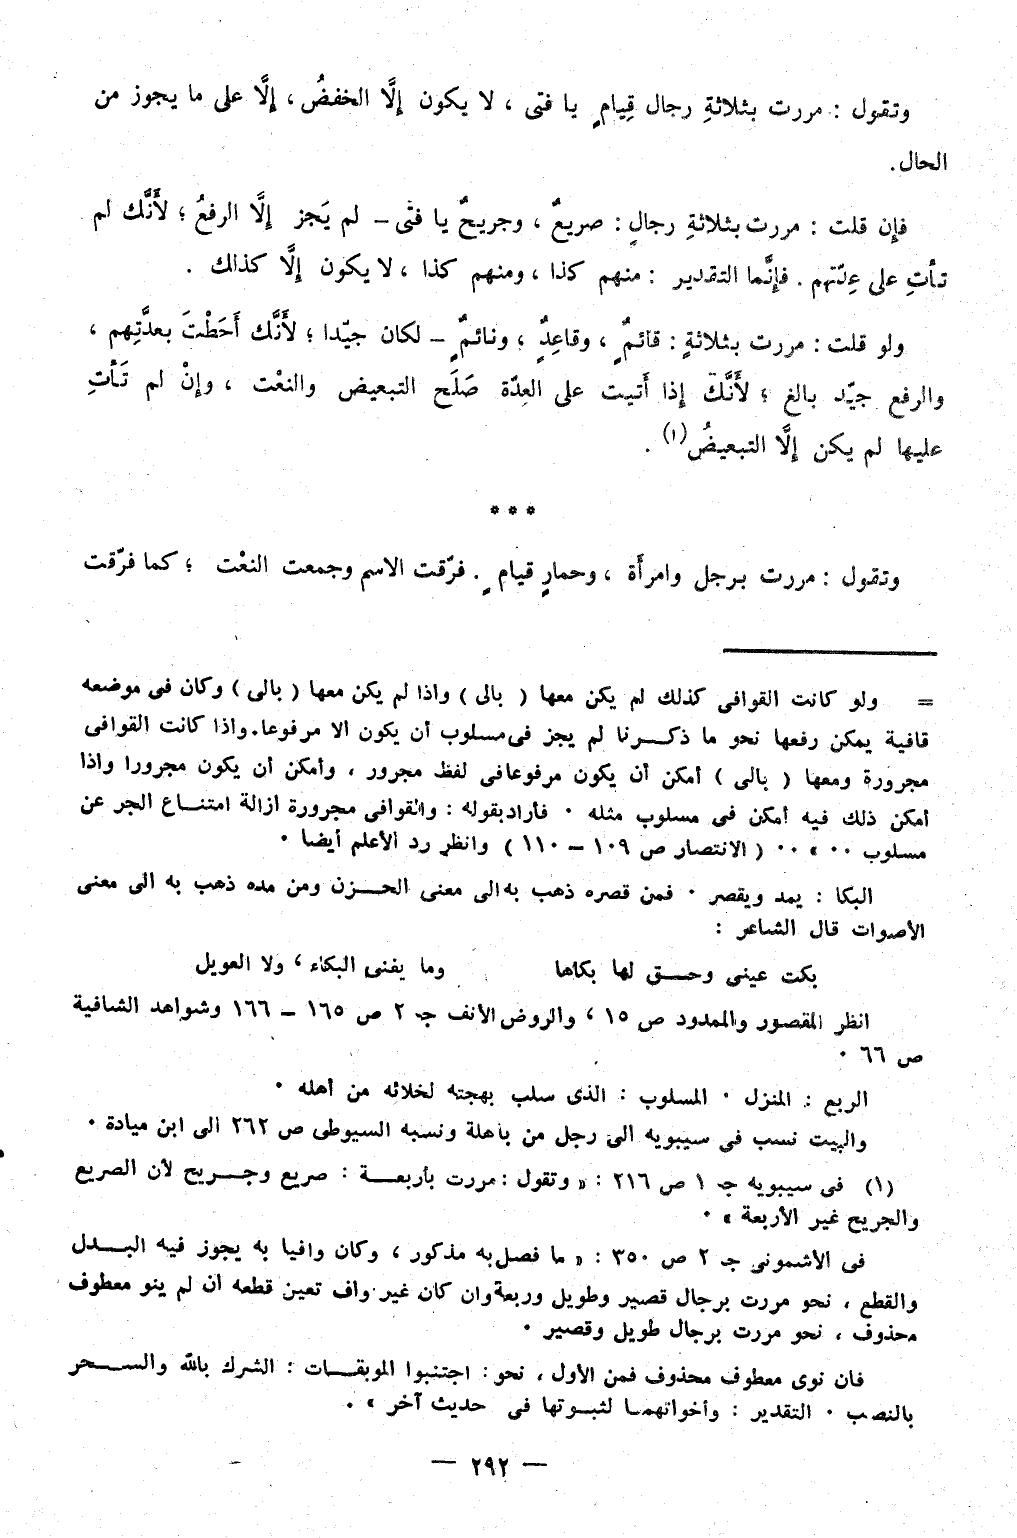 وتقول : مررت بثلاثةِ رجال قِيامٍ يا فتى ، لا يكون إلَّا الخفضُ ، إلَّا على ما يجوز من
الحال .
فإن قلت : مررت بثلاثةِ رجالٍ : صريعٌ ، وجريحٌ يا فتى – لم يَجز إلَّا الرفعُ ؛ لأَنَّك لم
تأتِ على عِدّتهم . فإنَّما التقدير : منهم كذا ، ومنهم كذا ، لا يكون إلَّا كذلك .
ولو قلت : مررت بثلاثةٍ : قائمٌ ٍ ، وقاعِدٌ ٍ ، ونائمٌ ٍ – لكان جيّدا ؛ لأَنَّك أَحَطْتَ بعدَّتِهم ،
والرفع جيّد بالغ ؛ لأَنَّك إذا أَتيت على العِدّة صَلَح التبعيض والنعْت ، وإنْ لم تَأتِ
عليها لم يكن إلَّا التبعيضُ (١) .
* * *
وتقول : مررت برجل وامرأَة ، وحمارٍ قيامٍ . فرّقت الاسم وجمعت النعْت ؛ كما فرّقت
= ولو كانت القوافى كذلك لم يكن معها ( بالى ) واذا لم يكن معها ( بالى ) وكان فى موضعه
قافية يمكن رفعها نحو ما ذكرنا لم يجز فى مسلوب أن يكون الا مرفوعا . واذا كانت القوافى
مجرورة ومعها ( بالى ) أمكن أن يكون مرفوعا فى لفظ مجرور ، وأمكن أن يكون مجرورا واذا
أمكن ذلك فيه أمكن فى مسلوب مثله · فأراد بقوله : والقوافى مجرورة ازالة امتناع الجر عن
مسلوب ·· » ·· ( الانتصار ص ١٠٩ – ١١٠ ) وانظر رد الأعلم أيضا ·
البكا : يمد ويقصر · فمن قصره ذهب به الى معنى الحزن ومن مده ذهب به الى معنى
الأصوات قال الشاعر :
بكت عينى وحق لها بكاها وما يغنى البكاء ، ولا العويل
انظر المقصور والممدود ص ١٥ ، والروض الأنف جـ ٢ ص ١٦٥ – ١٦٦ وشواهد الشافية
ص ٦٦ ·
الربع : المنزل · المسلوب : الذى سلب بهجته لخلائه من أهله ·
والبيت نسب فى سيبويه الى رجل من باهلة ونسبه السيوطى ص ٢٦٢ الى ابن ميادة ·
(١) فى سيبويه جـ ١ ص ٢١٦ : « وتقول : مررت بأربعة : صريع وجريح لأن الصريع
والجريح غير الأربعة » ·
فى الأشمونى جـ ٢ ص ٣٥٠ : « ما فصل به مذكور ، وكان وافيا به يجوز فيه البدل
والقطع ، نحو مررت برجال قصير وطويل وربعة وان كان غير واف تعين قطعه ان لم ينو معطوف
محذوف ، نحو مررت برجال طويل وقصير ·
فان نوى معطوف محذوف فمن الأول ، نحو : اجتنبوا الموبقات : الشرك بالله والسحر
بالنصب · التقدير : وأخواتهما لثبوتها فى حديث آخر » ·
— ٢٩٢ —